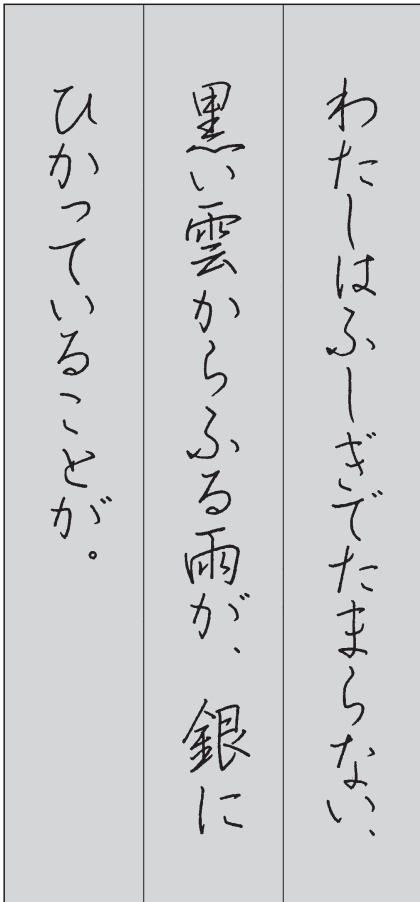 わたしはふしぎでたまらない、
黒い雲からふる雨が、銀に
ひかっていることが。